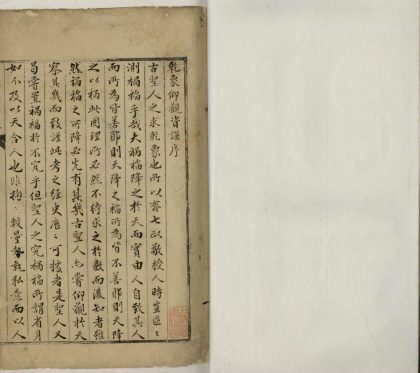 乾象仰觀資謹序
古聖人之求乾象也所以齊七政敬授人時豈區區
測禍福乎哉夫禍福降之於天而實由人自致其人
而所為皆善耶則天降之福所為皆不善耶則天降
之以禍此固理所必然不待求之於數而後知者雖
然禍福之所降必先有其幾古聖人亦嘗仰觀於天
察其幾而致謹此考之經史屢屢可據者是聖人又
曷嘗置禍福於不究乎但聖人之究禍福所謂省身
如不及以天合人也非揣 較量勢執私意而以人